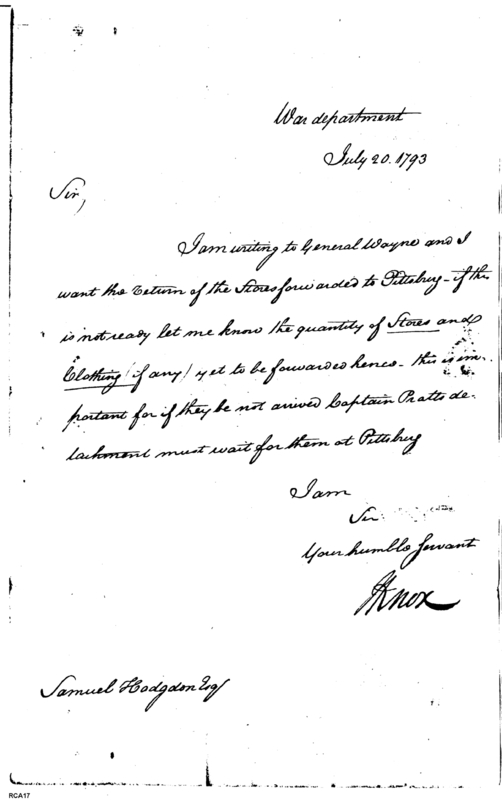 War department
July 20. 1793
Sir,
I am writing to General Wayne and I
want the return of the Stores forwarded to Pittsburg - if this
is not ready let me know the quantity of Stores and
Clothing (if any) yet to be forwarded hence - this is im-
portant for if they be not arrived Captain Pratts de-
tachment must wait for them at Pittsburg
I am
Sir
Your humble Servant
HKnox
Samuel Hodgdon Esq
RCA17